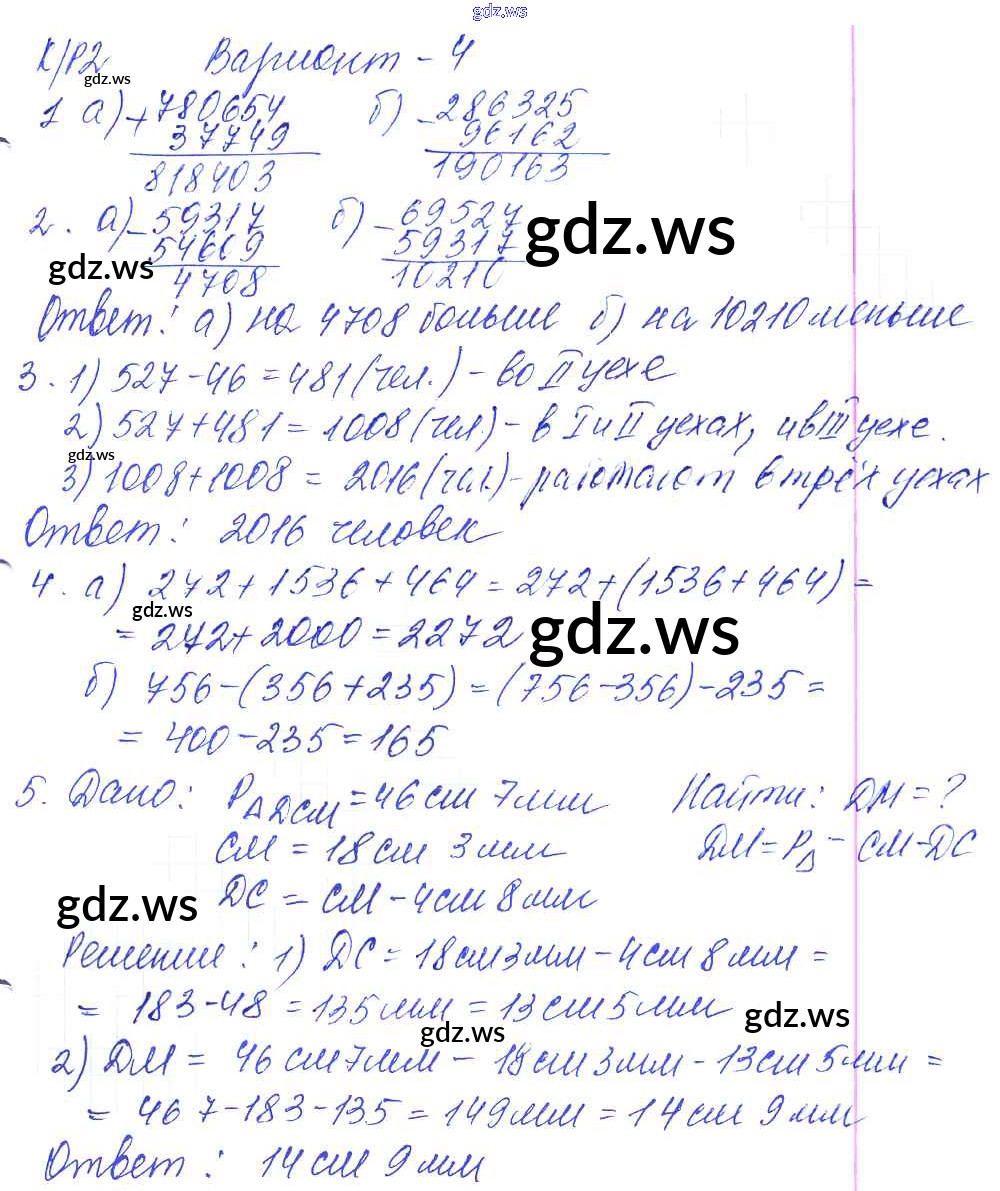 gdz.ws
К/Р2 Вариант - 4
gdz.ws
1 а) + 780654 б) - 286325
37749 96162
818403 190163
2. а) - 59317 б) - 69527 gdz.ws
54609 59317
gdz.ws 4708 10210
Ответ: а) на 4708 больше б) на 10210 меньше
3. 1) 527-46=481(чел.)-во II цехе
2) 527+481=1008(чел)-в I и II цехах, и в III цехе.
gdz.ws
3) 1008+1008 = 2016(чел.)-работают в трёх цехах
Ответ: 2016 человек
4. а) 272+1536+464=272+(1536+464)=
gdz.ws
=272+2000=2272 gdz.ws
б) 756-(356+235)=(756-356)-235=
= 400-235=165
5. Дано: PАДСМ=46см 7мм Найти: ДМ=?
СМ = 18см 3мм ДМ=PΔ-СМ-ДС
gdz.ws ДС = СМ-4см 8мм
Решение: 1) ДС=18см3мм-4см 8мм=
= 183-48=135мм=13см5мм gdz.ws
gdz.ws
2) ДМ = 46см7мм-18см3мм-13см5мм=
= 467-183-135=149мм=14см 9мм
Ответ: 14см 9мм